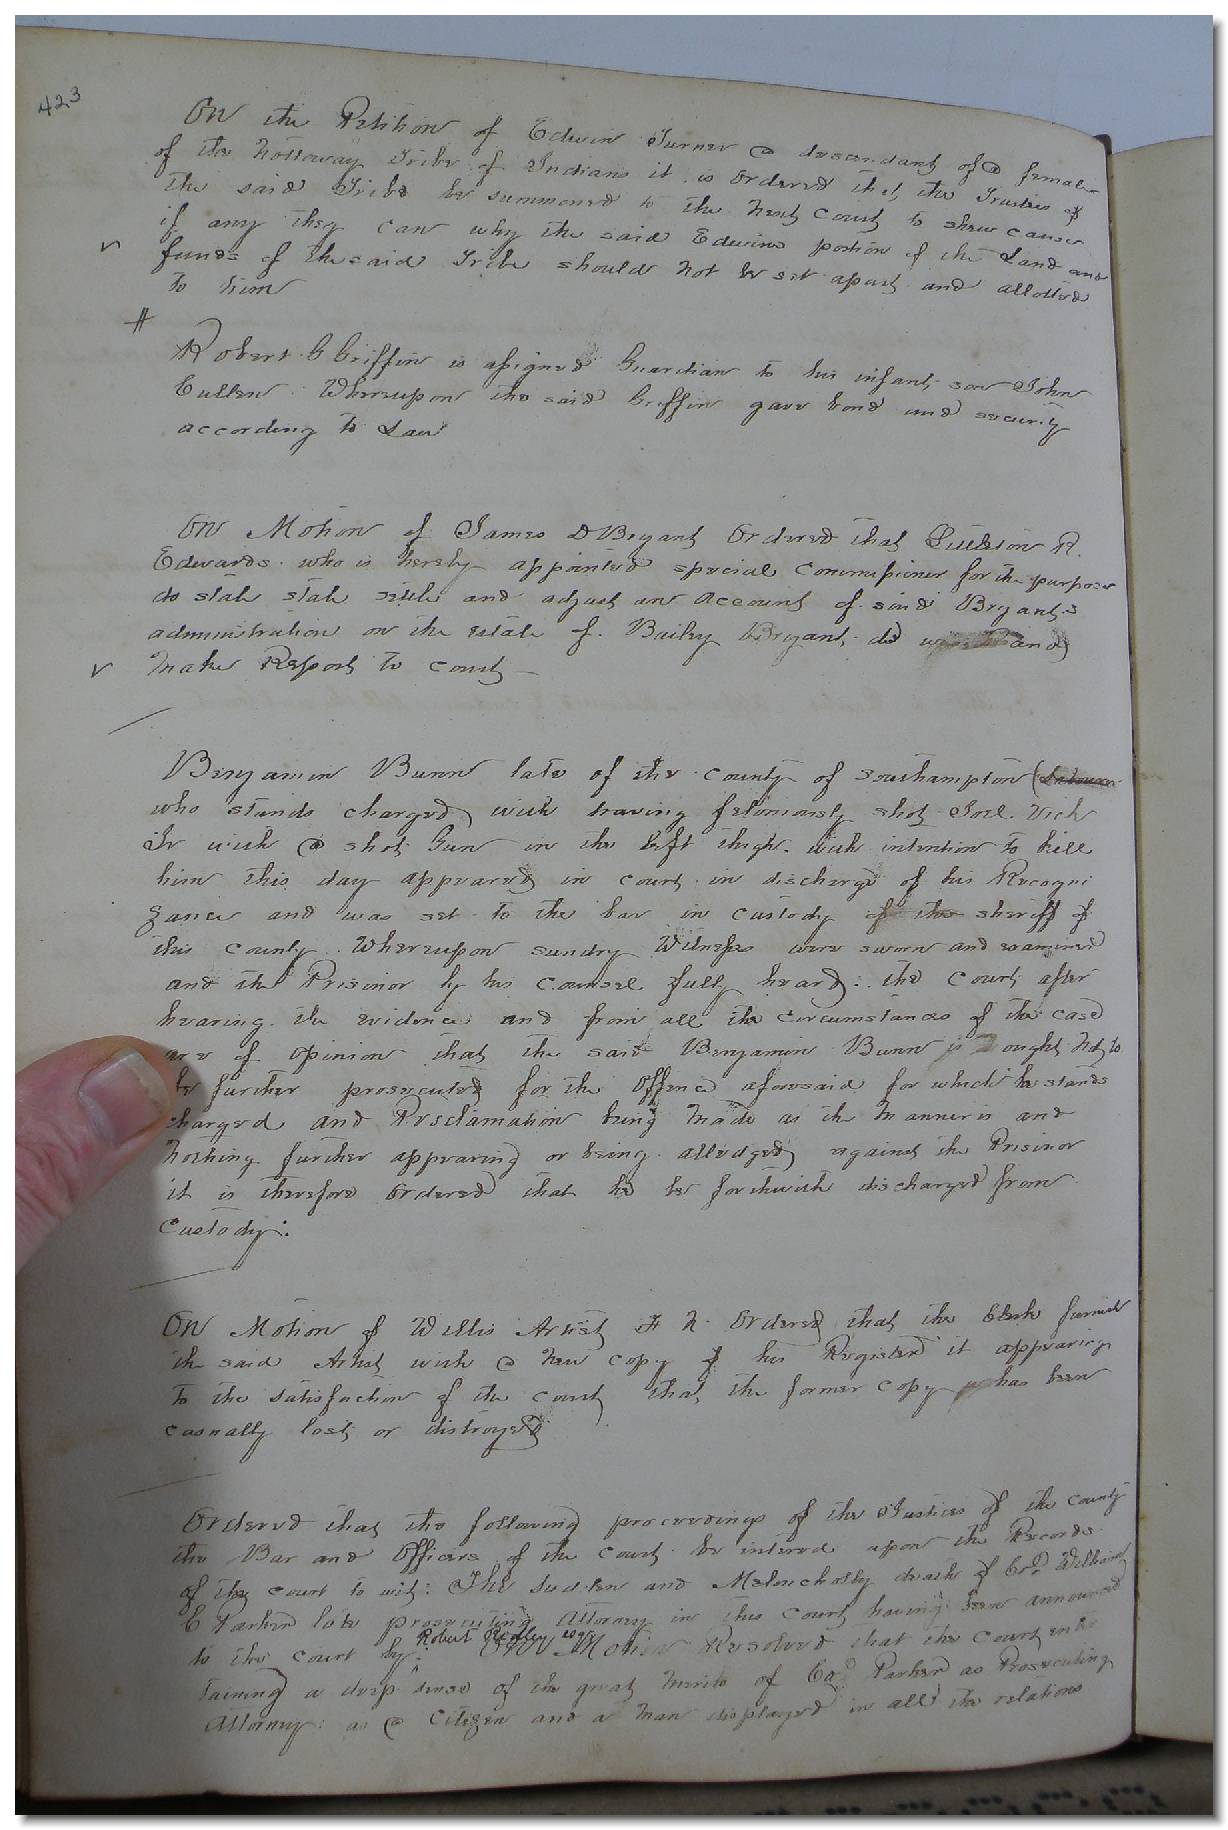 423
On the Petition of Edwin Turner a descendant of a female
of the Nottoway Tribe of Indians it is Ordered that the Trustees of
the said Tribe be summoned to the next Court to shew cause
if any they can why the said Edwins portion of the Land and
funds of the said Tribe should not be set apart and allotted
to him
Robert G Griffin is assigned Guardian to his infant son John
Cullen Whereupon the said Griffin gave bond and security
according to Law
On Motion of James D Bryant Ordered that Littleton R.
Edwards who is hereby appointed special Commissioner for the purpose
do state state settle and adjust an Account of said Bryant's
administration on the estate of Bailey Bryant decd and
make Report to Court
Benjamin Bunn late of the County of Southampton (Labourer
who stands charged with having feloniously shot Joel Vick
Jr with a shot Gun in the left thigh with intention to kill
him this day appeared in Court in discharge of his Recogni
zance and was set to the bar in custody of the sheriff of
this County Whereupon sundry Witnesses were sworn and examined
and the Prisinor by his Counsel fully heard: the Court after
hearing the evidence and from all the Circumstances of the case
are of Opinion that the said Benjamin Bunn is ought not to
be further prosecuted for the Offence aforesaid for which he stands
charged and Proclamation being made as the Manner is and
Nothing further appearing or being alledged against the Prisinor
it is therefore Ordered that he be forthwith discharged from
Custody:
On Motion of Willis Artist F N. Ordered that the Clerk furnish
the said Artist with a new copy of his Register it appearing
to the satisfaction of the Court that the former copy has been
casually lost or distroyed
Ordered that the following proceedings of the Justices of the County
the Bar and Officers of the Court be intered upon the Records
of the Court to wit: The sudden and Melancholly death of Cod William
C Parker late prosecuting Attorney in this Court having been announced
Robert Ridley esqr
to the Court by: On Motion Resolved that the Court enter
taining a deep sense of the great merits of Cod Parker as Prosecuting
Attorney: as a Citizen and a man displayed in all the relations